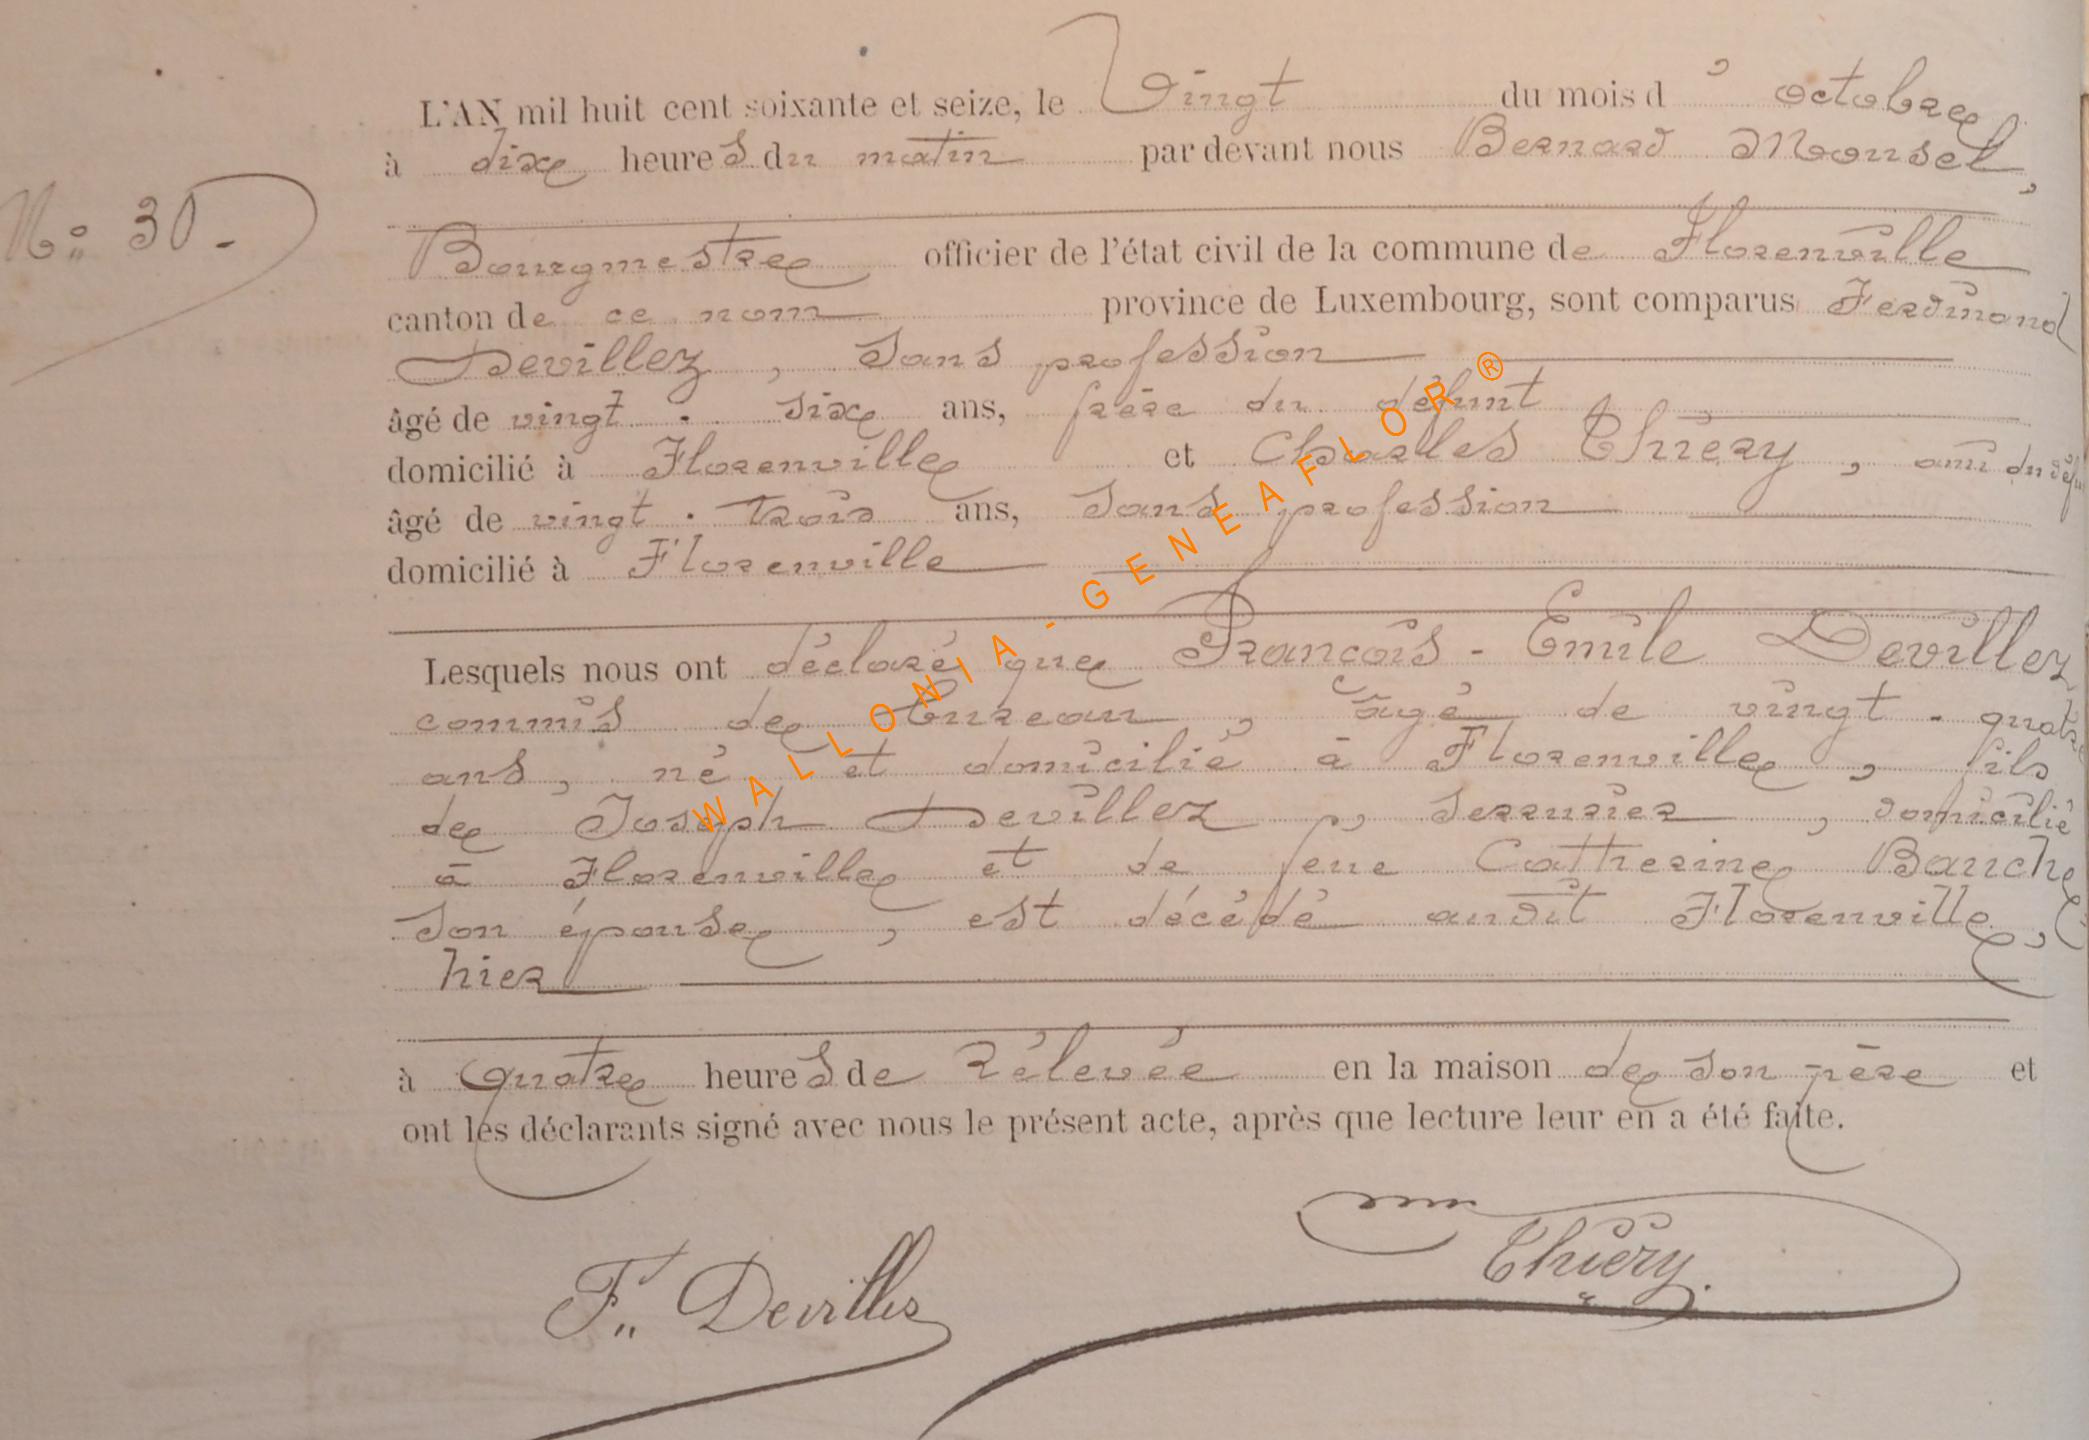 L'AN mil huit cent soixante et seize, le Vingt du mois d'octobre
à dix heures du matin par devant nous Bernard Monsel,
N.º 30.
Bourgmestre officier de l'état civil de la commune de Florenville
canton de ce nom province de Luxembourg, sont comparus Ferdinand
Devillez, sans profession
âgé de vingt-six ans, frère du défunt
domicilié à Florenville et Charles Thiery, ami du défu
âgé de vingt-trois ans, sans profession
domicilié à Florenville
Lesquels nous ont déclaré que François-Emile Devillez
commis de bureau, âgé de vingt-quatre
ans, né et domicilié à Florenville, fils
de Joseph Devillez, serrurier, domicilié
à Florenville et de feue Catherine Banche
son épouse, est décédé audit Florenville,
hier
à quatre heures de rélevée en la maison de son père et
ont les déclarants signé avec nous le présent acte, après que lecture leur en a été faite.
F. Devillez
Thiery.
WALLONIA-GENEAFLOR®